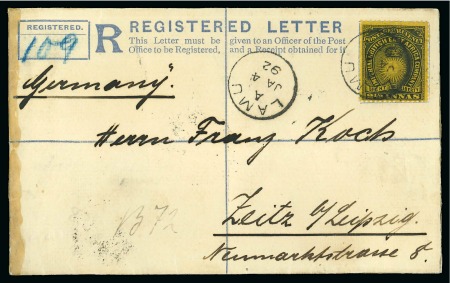 REGISTERED.
109
R REGISTERED LETTER
This Letter must be given to an Officer of the Post
Office to be Registered, and a Receipt obtained for it
LAMU
A
JA 4
92
MU
ANNAS
Germany".
Herrn Franz Koch
1372
Zeitz b/Leipzig.
Neumarktstrasse 8.